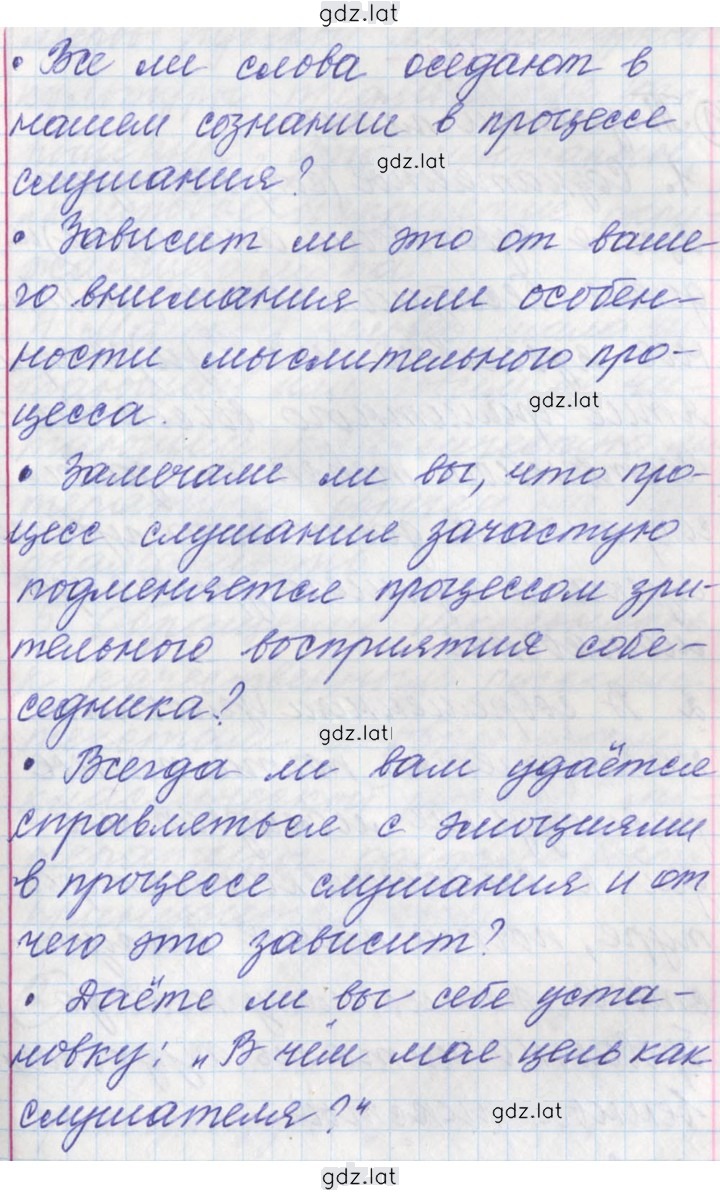 gdz.lat
• Все ли слова оседают в
нашем сознании в процессе
gdz.lat
слушания?
• Зависит ли это от ваше-
го внимания или особен-
ности мыслительного про-
gdz.lat
цесса.
• Замечали ли вы, что про-
цесс слушания зачастую
подменяется процессом зри-
тельного восприятия собе-
седника?
gdz.lat
• Всегда ли вам удаётся
справляться с эмоциями
в процессе слушания и от
чего это зависит?
• Даёте ли вы себе уста-
новку: „В чём моя цель как
слушателя?"
gdz.lat
gdz.lat